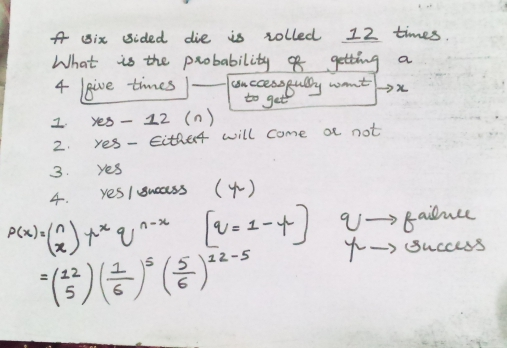 A six sided die is rolled 12 times.
What is the probability of getting a
4 five times — successfully want to get → x
1. Yes - 12 (n)
2. Yes - Either 4 will come or not
3. Yes
4. Yes / success (p)
P(x) = (n x) p^x q^n-x [q = 1 - p] q → failure
p → success
= (12 5) (1/6)^5 (5/6)^12-5